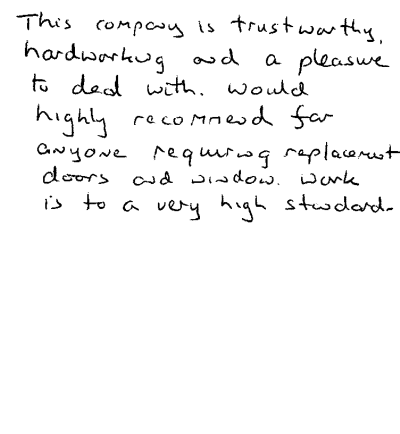 This company is trustworthy,
hardworking and a pleasure
to deal with. Would
highly recommend for
anyone requiring replacement
doors and window. Work
is to a very high standard.